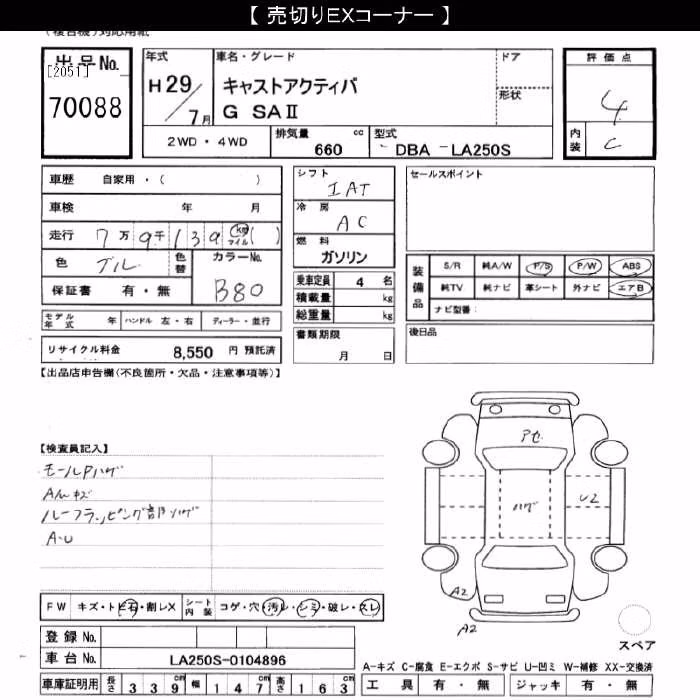 【 売切りEXコーナー 】
(複合機)対応用紙
出品No.
[2051]
70088
年式
H29/7月
車名・グレード
キャストアクティバ
G SAⅡ
ドア
形状
評価点
4
内装
C
2WD・4WD
排気量 cc
660
型式
DBA -LA250S
車歴 自家用・( )
車検 年 月
走行 7万9千139 km マイル ( )
色 ブル 色替
カラーNo.
B80
保証書 有・無
モデル年式 年 ハンドル 左・右 ディーラー・並行
リサイクル料金 8,550 円 預託済
シフト
IAT
冷房
AC
燃料
ガソリン
乗車定員 4 名
積載量 kg
総重量 kg
書類期限
月 日
セールスポイント
装備品
S/R 純A/W P/S P/W ABS
純TV 純ナビ 革シート 外ナビ エアB
ナビ型番:
後日品
【出品店申告欄(不良箇所・欠品・注意事項等)】
【検査員記入】
モールPハゲ
Aハンキズ
A・U
アセ
ハゲ
U2
A2
A2
スペア
FW キズ・トビ石・割レX シート内装 コゲ・穴・汚レ・シミ・破レ・スレ
登録No.
車台No. LA250S-0104896
車庫証明用 長さ 339cm 幅 147cm 高さ 163cm
A-キズ C-腐食 E-エクボ S-サビ U-凹ミ W-補修 XX-交換済
工具 有・無 ジャッキ 有・無